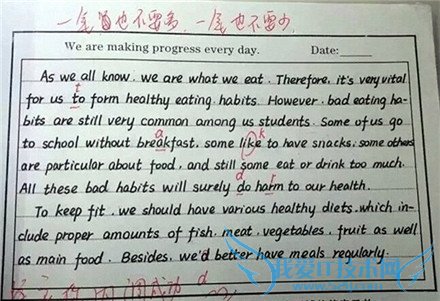 一笔画也不要多，一笔也不要少
We are making progress every day. Date:
As we all know, we are what we eat. Therefore, it's very vital
for us to form healthy eating habits. However, bad eating ha-
bits are still very common among us students. Some of us go
to school without breakfast, some like to have snacks, some others
are particular about food, and still some eat or drink too much.
All these bad habits will surely do harm to our health.
To keep fit, we should have various healthy diets, which in-
clude proper amounts of fish, meat, vegetables, fruit as well
as main food. Besides, we'd better have meals regularly.